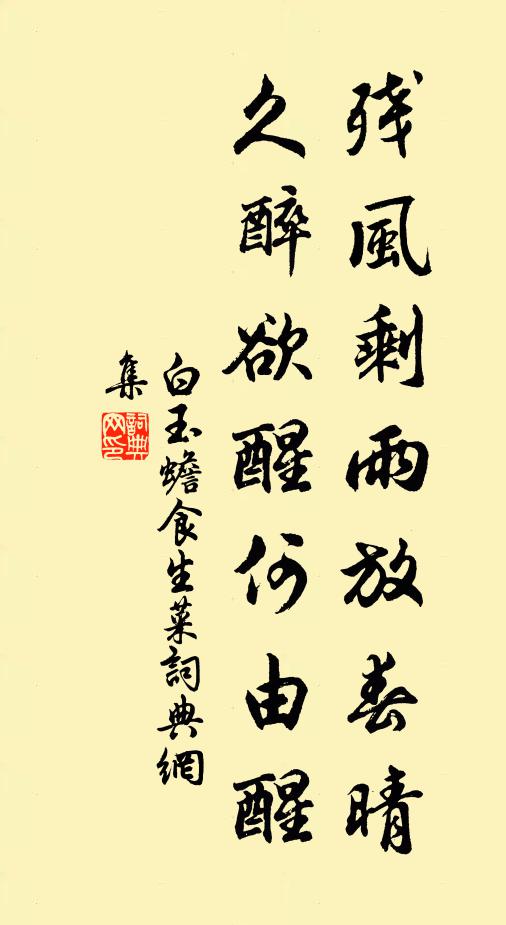 残風剩雨放春晴
久醉欲醒何由醒
白玉蟾食生菜詞典網
集
詞典
网印